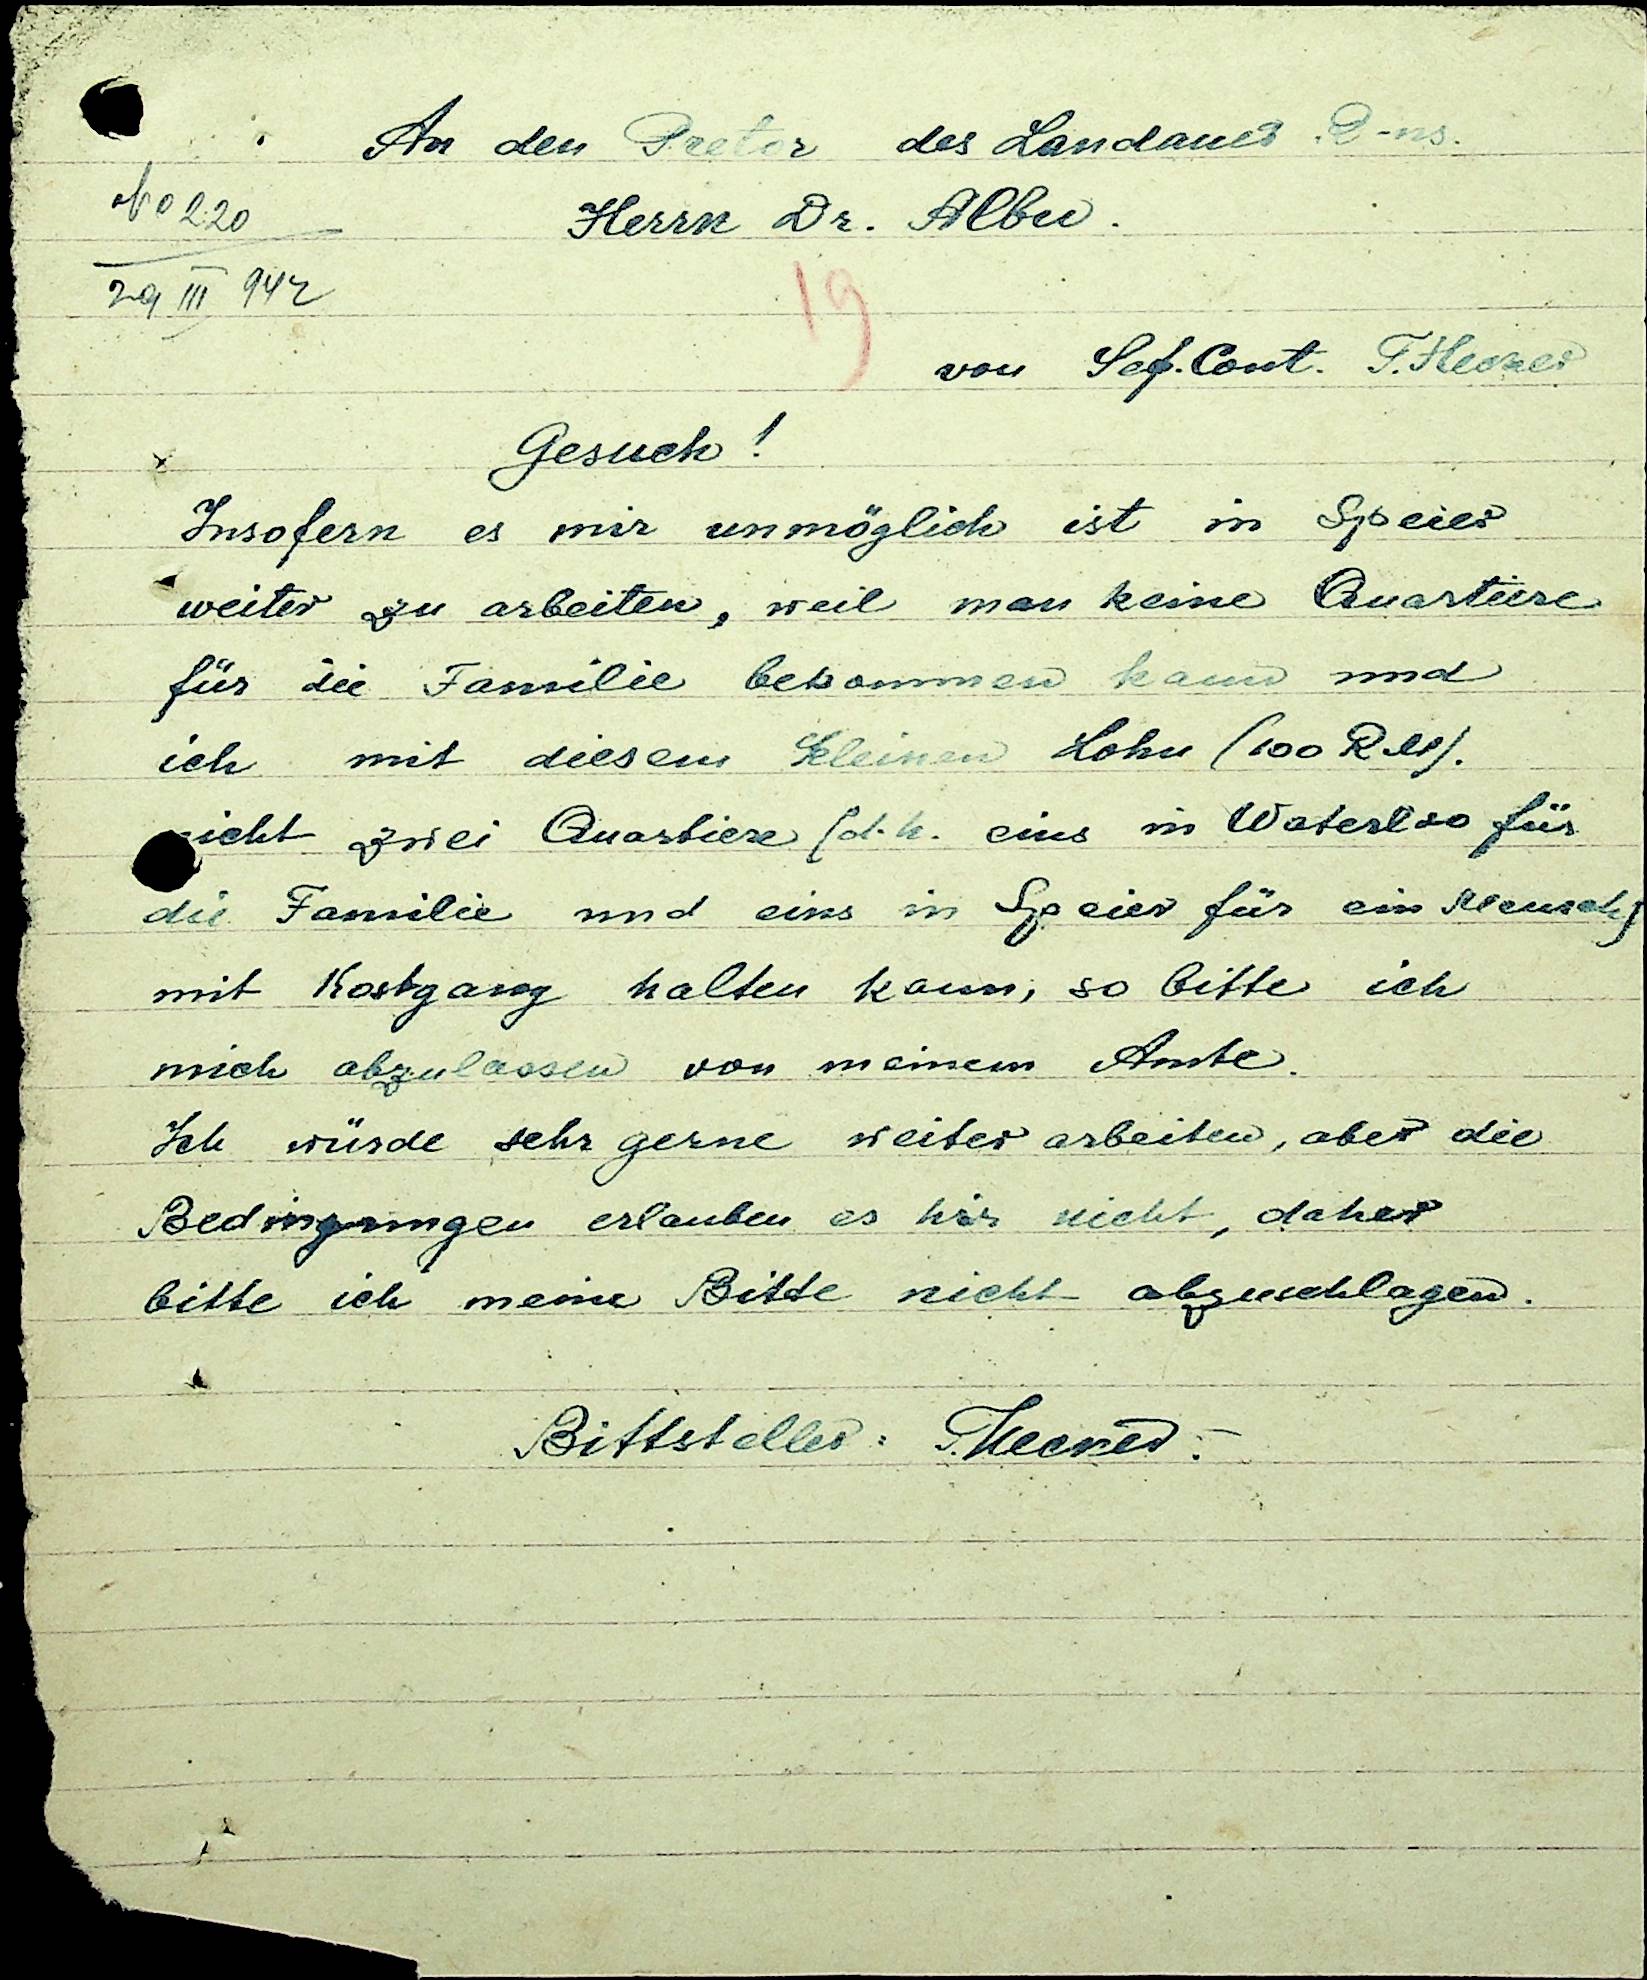 An den Pretor des Landauer R-ns.
No 220
Herrn Dr. Albu.
29 III 942
19
von Sef. Cont. T. Hecker
Gesuch!
Insofern es mir unmöglich ist in Speier
weiter zu arbeiten, weil man keine Quartiere
für die Familie bekommen kann und
ich mit diesem kleinen Lohn (100 RM).
nicht zwei Quartiere (d.h. eins in Waterloo für
die Familie und eins in Speier für ein Mensch)
mit Kostgang halten kann, so bitte ich
mich abzulassen von meinem Amte.
Ich würde sehr gerne weiter arbeiten, aber die
Bedingungen erlauben es hir nicht, daher
bitte ich meine Bitte nicht abzuschlagen.
Bittsteller: T. Hecker.